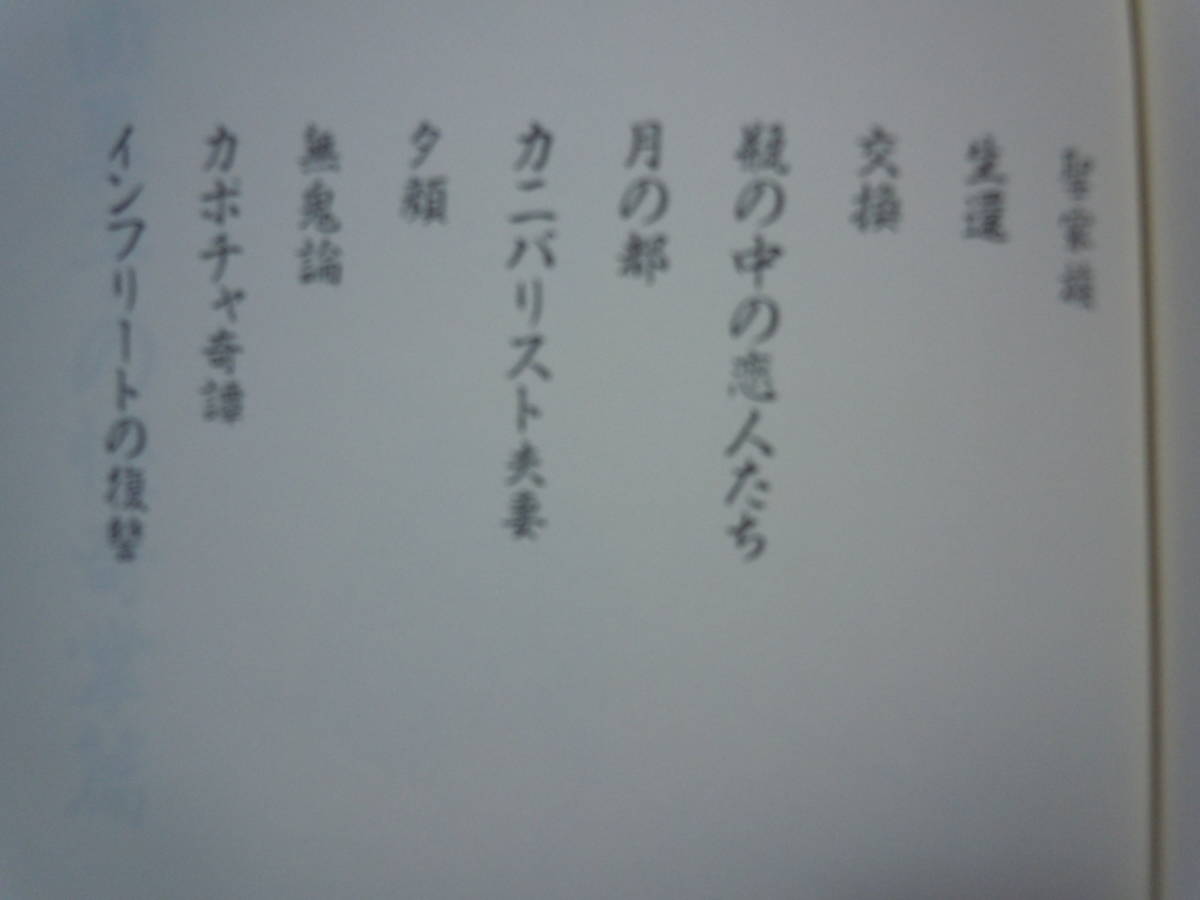 聖家族
生還
交換
瓶の中の恋人たち
月の都
カニバリスト夫妻
夕顔
無鬼論
カボチャ奇譚
イフリートの復讐